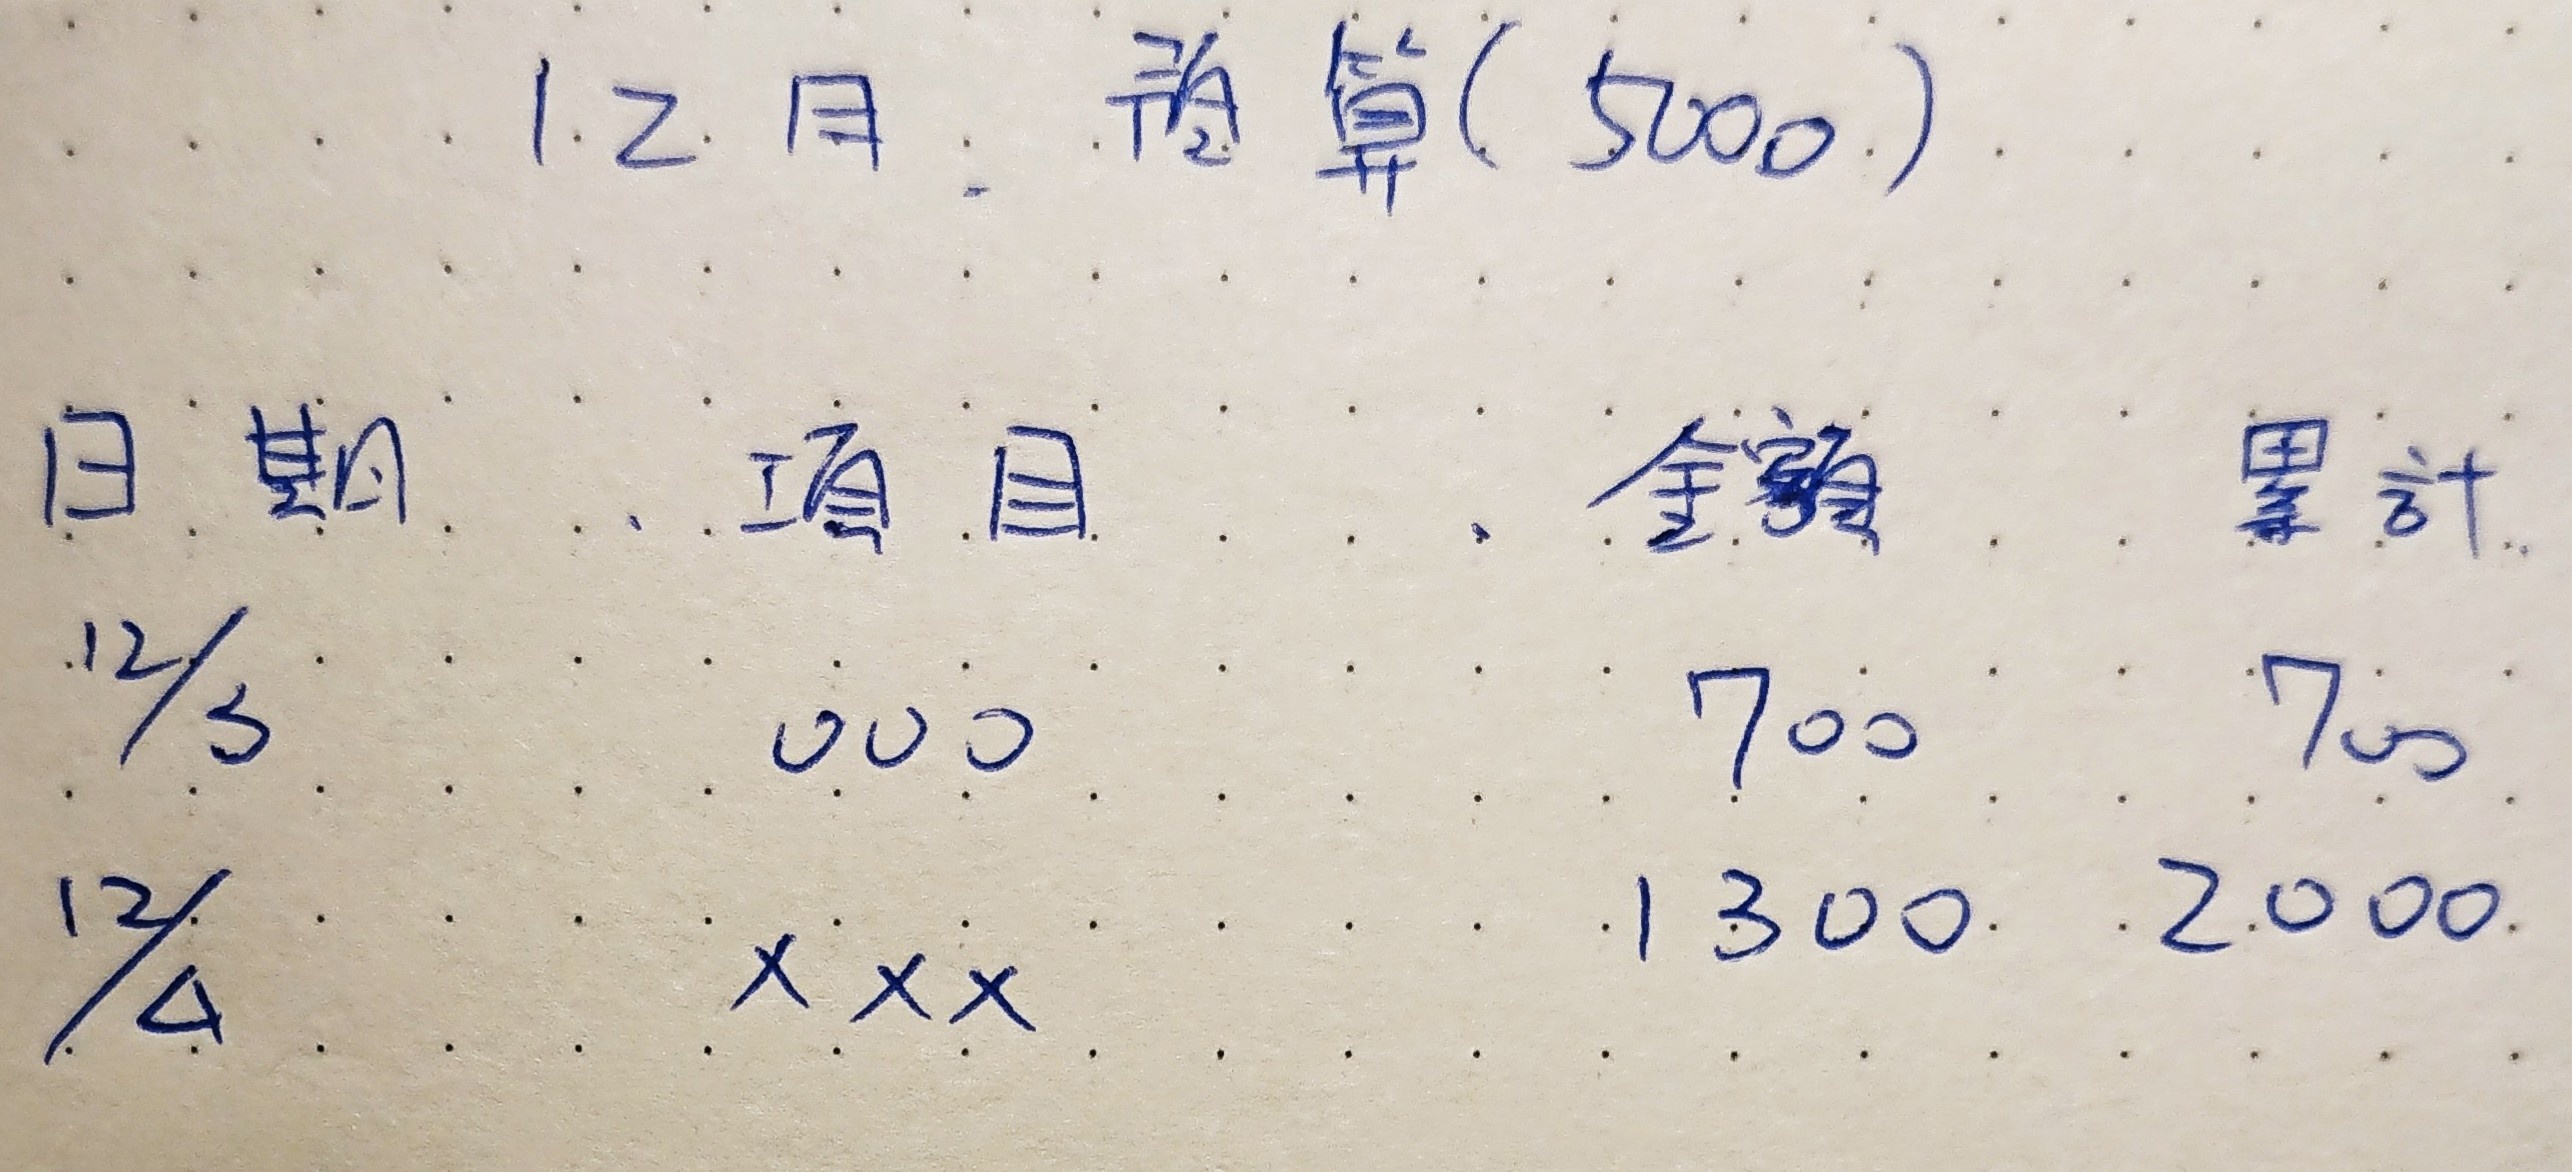 12月 預算(5000)
日期 項目 金額 累計
12/3 000 700 700
12/4 xxx 1300 2000